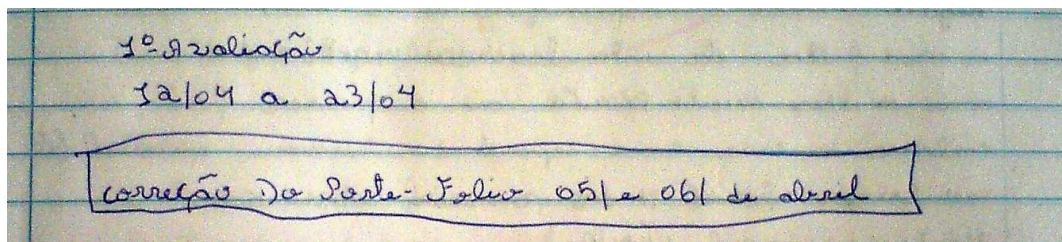 1º Avaliação
12/04 a 23/04
correção Do Porte-Folio 05/ e 06/ de abril